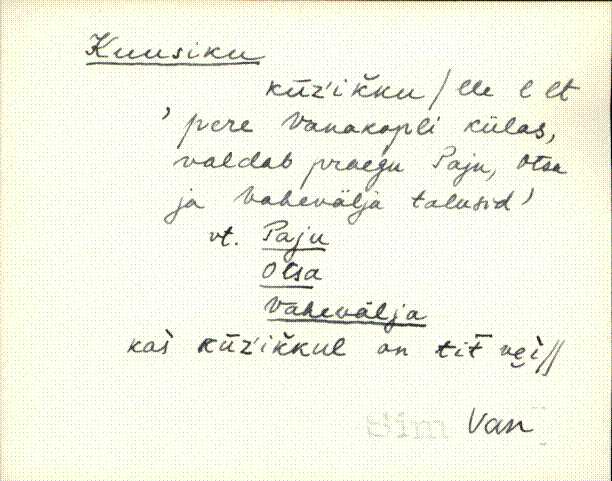 Kuusiku
kūz'ikku / lle l lt
' pere Vanakopli külas,
valdab praegu Paju, Otsa
ja Vahevälja talusid '
vt. Paju
Otsa
Vahevälja
kas kūz'ikkul on tit̄ vei //
Van